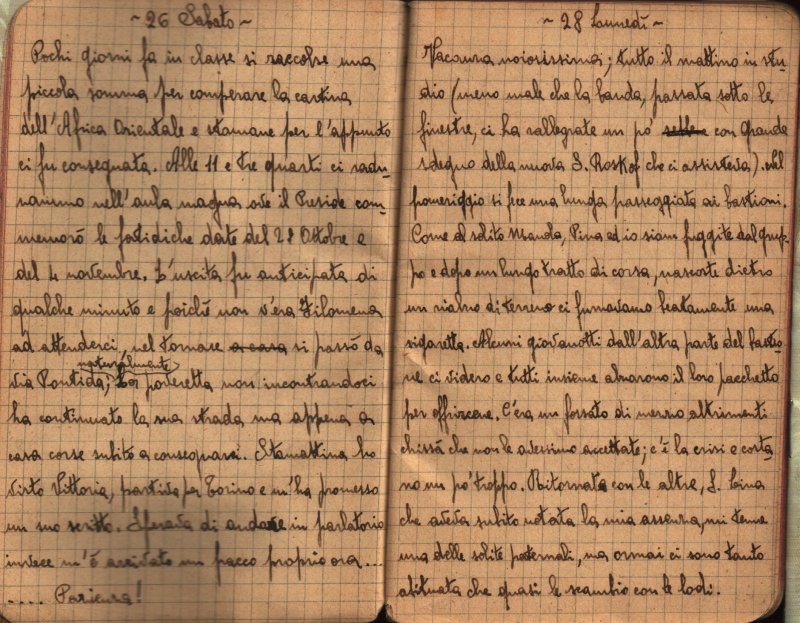 ~ 26 Sabato ~
Pochi giorni fa in classe si raccolse una
piccola somma per comperare la cartina
dell'Africa Orientale e stamane per l'appunto
ci fu consegnata. Alle 11 e tre quarti ci radu-
nammo nell'aula magna ove il Preside com-
memorò le fatidiche date del 28 Ottobre e
del 4 novembre. L'uscita fu anticipata di
qualche minuto e poichè non v'era Filomena
ad attenderci, nel tornare a casa si passò da
naturalmente
Via Pontida; La poveretta non incontrandoci
ha continuato la sua strada ma appena a
casa corse subito a consegnarsi. Stamattina ho
visto Vittoria, partiva per Torino e m'ha promesso
un suo scritto. Speravo di andare in parlatorio
invece m'è arrivato un pacco proprio ora....
.... Pazienza!
~ 28 Lunedì ~
Vacanza noiosissima; tutto il mattino in stu-
dio (meno male che la banda, passata sotto le
finestre, ci ha rallegrate un po' con grande
sdegno della nuova S. Roskof che ci assisteva). Nel
pomeriggio si fece una lunga passeggiata ai bastioni.
Come al solito Wanda, Pina ed io siam fuggite dal grup-
po e dopo un lungo tratto di corsa, nascoste dietro
un rialzo di terreno ci fumavamo beatamente una
sigaretta. Alcuni giovanotti dall'altra parte del bastio-
ne ci videro e tutti insieme alzarono il loro pacchetto
per offrircene. C'era un fossato di mezzo altrimenti
chissà che non le avessimo accettate; c'è la crisi e costa-
no un po' troppo. Ritornata con le altre, S. Lina
che aveva subito notata la mia assenza, mi tenne
una delle solite paternali, ma ormai ci sono tanto
abituata che quasi le scambio con le lodi.